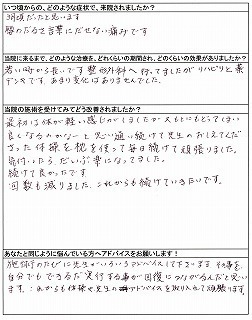 いつ頃からの、どのような症状で、来院されましたか?
3月頃だったと思います
腰のだるさ言葉にだせない痛みです
当院に来るまで、どのような治療を、どれくらいの期間され、どのくらいの効果がありましたか?
若い時から長いです 整形外科へ行ってましたがリハビリと薬
デンキです、あまり変化はありませんでした、
当院の施術を受けてみてどう改善されましたか?
最初は体が軽い感じがしましたが又もとにもどってしまい
良くなるのかなーと思い通い続けて先生のおしえてくれた
体操を枕を使って毎日続けて頑張りました、
気付いたら、だいぶ楽になってました、
続けて良かったです
回数も減りました、これからも続けていきたいです、
あなたと同じように悩んでいる方へアドバイスをお願いします!
施術のたびに先生がいろいろアドバイスして下さいます その事を
自分でもできるだけ実行する事が回復につながるんだと思い
ます、これからも体操や先生のアドバイスを取り入れて頑張ります